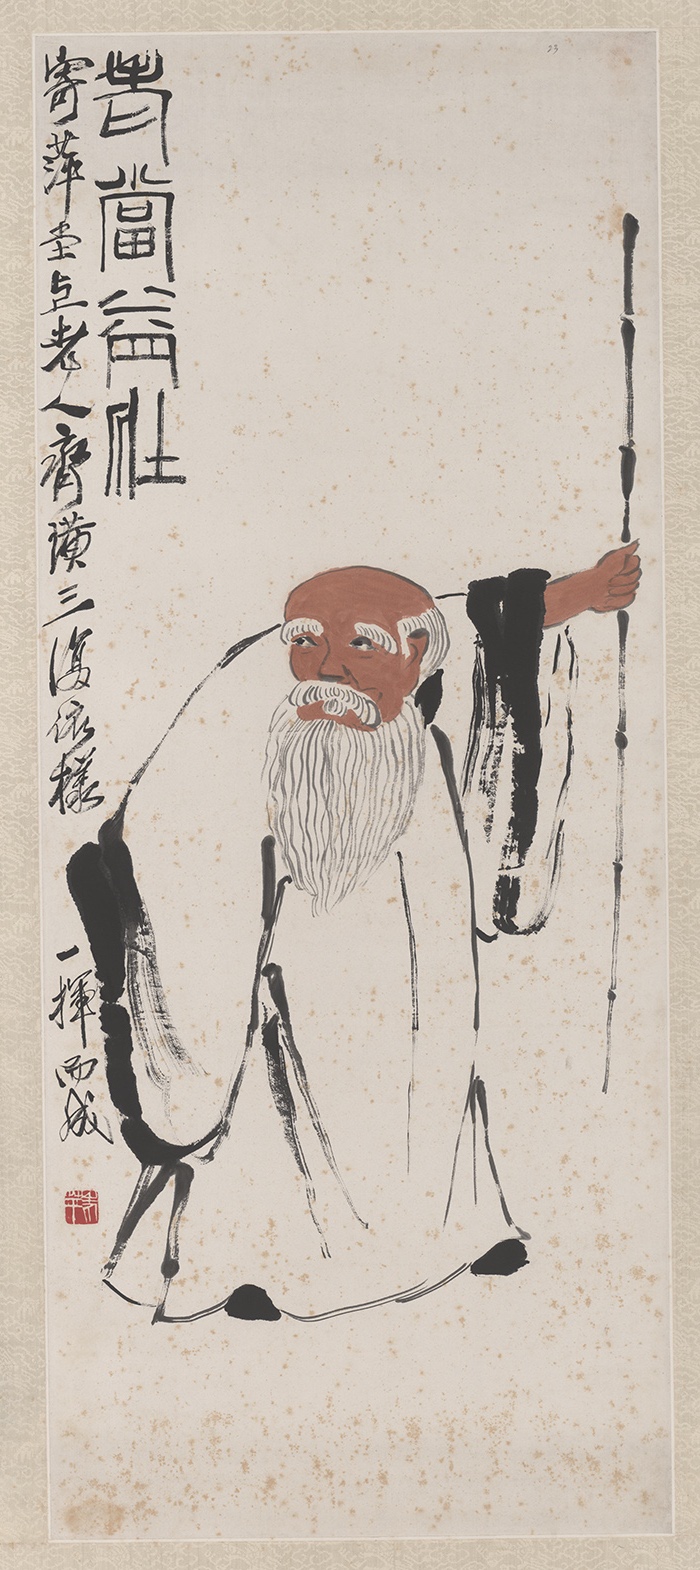 23
老當益壯
寄萍堂上老人齊璜三復依樣一揮而成